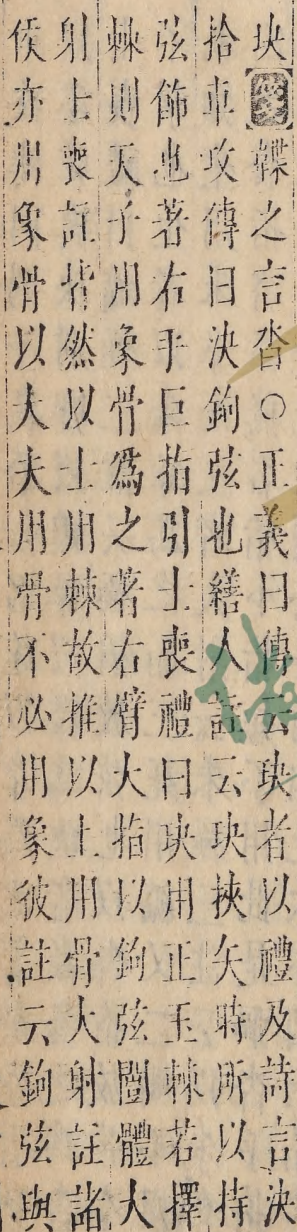 玦韘之言沓○正義曰傳云玦者以禮及詩言決
拾車攻傳曰決鉤弦也繕人註云玦挾矢時所以持
弦飾也著右手巨指引士喪禮曰玦用正王棘若擇
棘則天子用象骨爲之著右臂大指以鉤弦闓體大
射士喪註皆然以士用棘故推以上用骨大射註諸
侯亦用象骨以大夫用骨不必用象彼註云鉤弦與